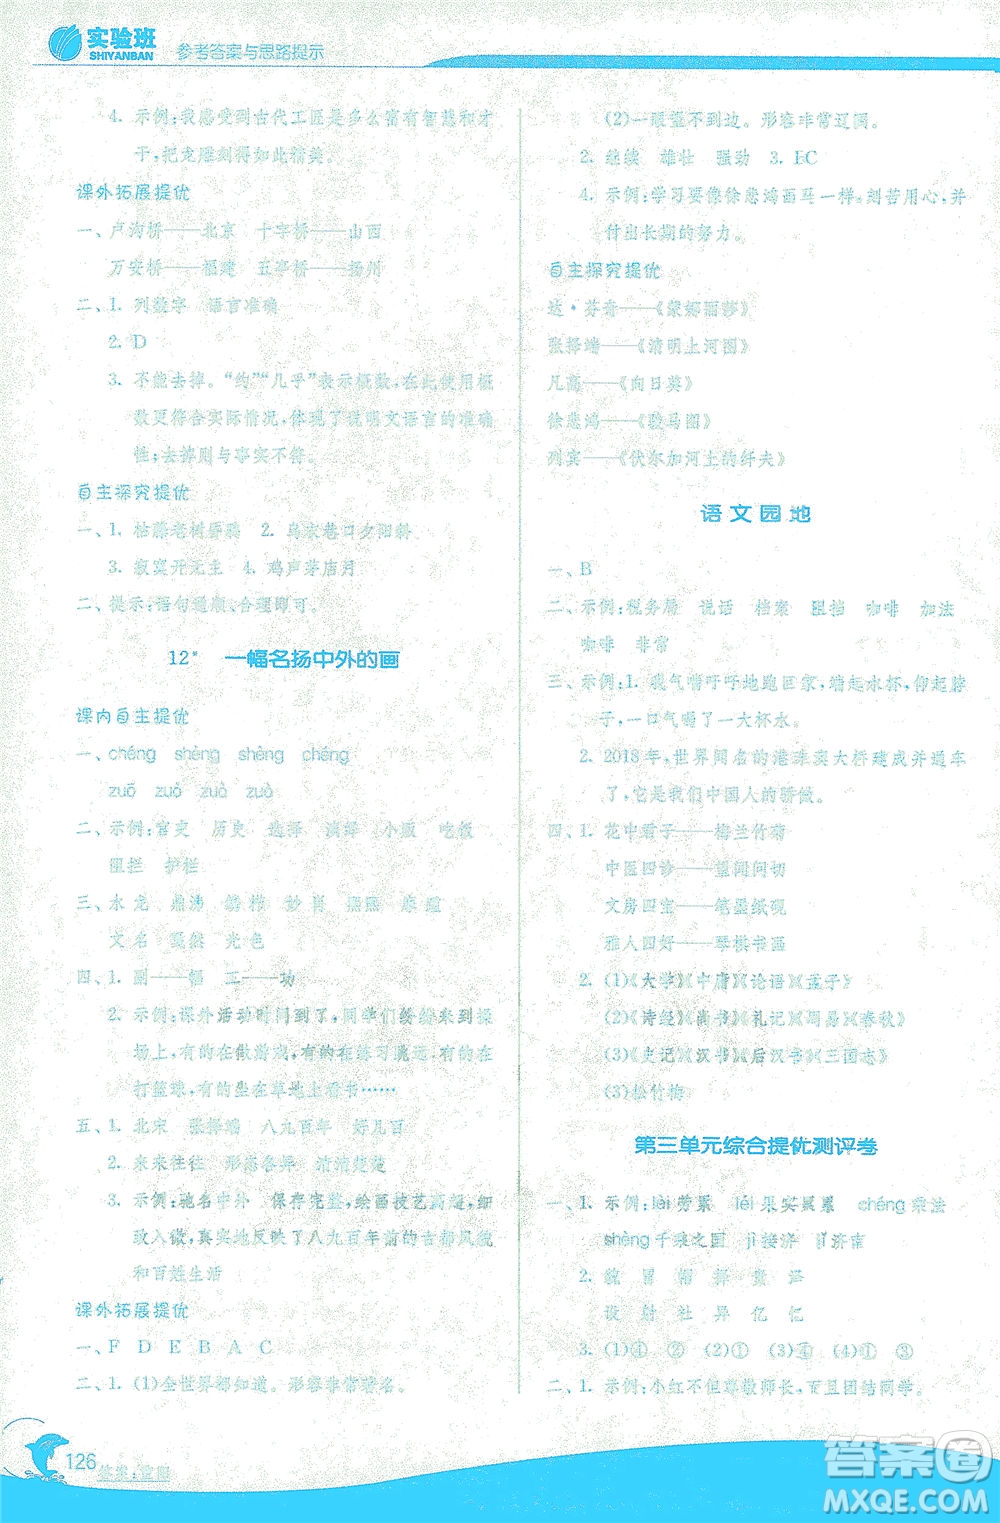 实验班
SHIYANBAN
参考答案与思路提示
4. 示例:我感受到古代工匠是多么富有智慧和才
干,把龙雕刻得如此精美。
课外拓展提优
一、卢沟桥——北京 十字桥——山西
万安桥——福建 五亭桥——扬州
二、1. 列数字 语言准确
2. D
3. 不能去掉。“约”“几乎”表示概数,在此使用概
数更符合实际情况,体现了说明文语言的准确
性;去掉则与事实不符。
自主探究提优
一、1. 枯藤老树昏鸦 2. 乌衣巷口夕阳斜
3. 寂寞开无主 4. 鸡声茅店月
二、提示:语句通顺、合理即可。
12* 一幅名扬中外的画
课内自主提优
一、chéng shèng shèng chéng
zuō zuò zuò zuò
二、示例:官吏 历史 选择 演绎 小贩 吃饭
阻拦 护栏
三、水 龙 鼎沸 妙 肖
文 名 戛然 光 色
四、1. 副——幅 工——功
2. 示例:课外活动时间到了,同学们纷纷来到操
场上,有的在做游戏,有的在练习跳远,有的在
打篮球,有的在草地上看书……
五、1. 北宋 张择端 八九百年 好几百
2. 来来往往 形态各异 清清楚楚
3. 示例:驰名中外 保存完整,绘画技艺高超,细
致入微,真实地反映了八九百年前的古都风貌
和百姓生活
课外拓展提优
一、F D E B A C
二、1. (1)全世界都知道。形容非常著名。
(2)一眼望不到边。形容非常辽阔。
2. 继续 雄壮 强劲 3. BC
4. 示例:学习要像徐悲鸿画马一样,刻苦用心,并
付出长期的努力。
自主探究提优
达·芬奇——《蒙娜丽莎》
张择端——《清明上河图》
凡高——《向日葵》
徐悲鸿——《骏马图》
列宾——《伏尔加河上的纤夫》
语文园地
一、B
二、示例:税务局 说话 档案 阻挡 咖啡 加法
咖啡 非常
三、示例:1. 我气喘吁吁地跑回家,端起水杯,仰起脖
子,一口气喝了一大杯水。
2. 2018年,世界闻名的港珠澳大桥建成并通车
了,这是我们中国人的骄傲。
四、1. 花中君子——梅兰竹菊
中医四诊——望闻问切
文房四宝——笔墨纸砚
雅人四好——琴棋书画
2. (1)《大学》《中庸》《论语》《孟子》
(2)《诗经》《尚书》《礼记》《周易》《春秋》
(3)《史记》《汉书》《后汉书》《三国志》
(3)松竹梅
第三单元综合提优测评卷
一、1. 示例:lèi 劳累 léi 果实累累 chéng 乘法
shèng 千乘之国 jì 接济 jǐ 济南
2. 貌 冒 择 泽
设 射 社 异 亿 忆
3. (1)④ ② (2)① ③ (3)② ① (4)① ③
二、1. 示例:小红不但尊敬师长,而且团结同学。
126
答案圈
MXQE.COM